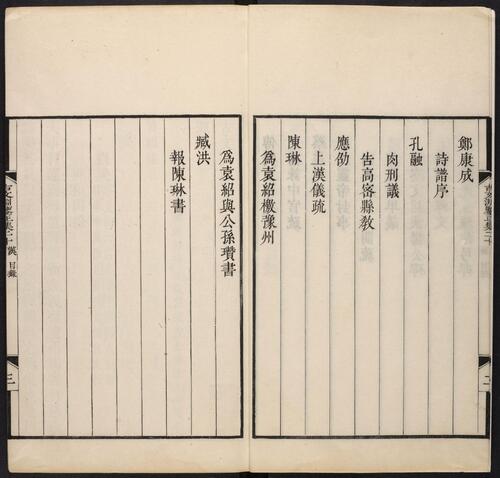 鄭康成
詩譜序
孔融
肉刑議
告高密縣敎
應劭
上漢儀疏
陳琳
爲袁紹檄豫州
爲袁紹與公孫瓚書
臧洪
報陳琳書
漢 目錄
三